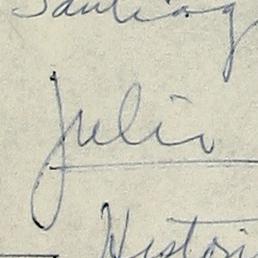 Santiag
Julio
Histori